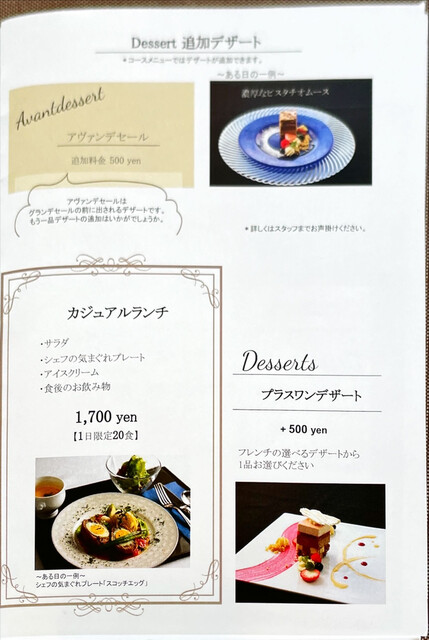 Dessert 追加デザート
*コースメニューではデザートが追加できます。
Avantdessert
アヴァンデセール
追加料金 500 yen
～ある日の一例～
濃厚なピスタチオムース
アヴァンデセールは
グランデセールの前に出されるデザートです。
もう一品デザートの追加はいかがでしょうか。
*詳しくはスタッフまでお声掛けください。
カジュアルランチ
・サラダ
・シェフの気まぐれプレート
・アイスクリーム
・食後のお飲み物
1,700 yen
【1日限定20食】
～ある日の一例～
シェフの気まぐれプレート「スコッチエッグ」
Desserts
プラスワンデザート
+ 500 yen
フレンチの選べるデザートから
1品お選びください